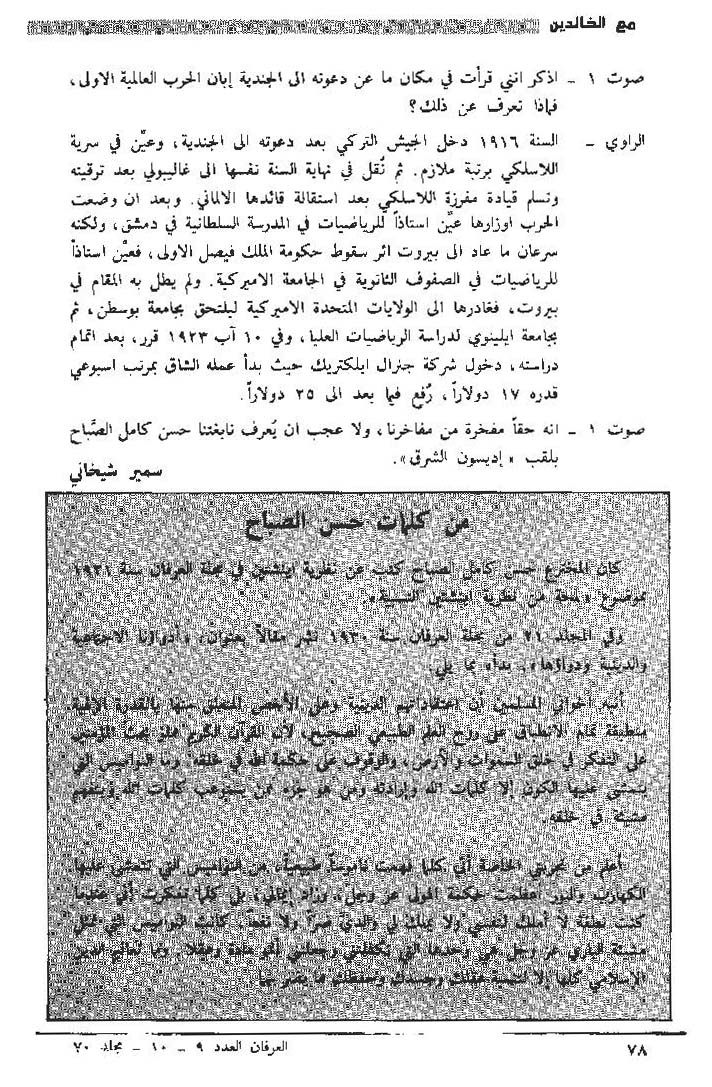 مع الخالدين
صوت ١ - اذكر انني قرأت في مكان ما عن دعوته الى الجندية إبان الحرب العالمية الاولى،
فماذا تعرف عن ذلك؟
الراوي - السنة ١٩١٦ دخل الجيش التركي بعد دعوته الى الجندية، وعيّن في سرية
اللاسلكي برتبة ملازم. ثم نُقل في نهاية السنة نفسها الى غاليبولي بعد ترقيته
وتسلم قيادة مفرزة اللاسلكي بعد استقالة قائدها الالماني. وبعد ان وضعت
الحرب اوزارها عيّن استاذاً للرياضيات في المدرسة السلطانية في دمشق، ولكنه
سرعان ما عاد الى بيروت اثر سقوط حكومة الملك فيصل الاولى، فعيّن استاذاً
للرياضيات في الصفوف الثانوية في الجامعة الاميركية. ولم يطل به المقام في
بيروت، فغادرها الى الولايات المتحدة الاميركية ليلتحق بجامعة بوسطن، ثم
بجامعة ايلينوي لدراسة الرياضيات العليا، وفي ١٠ آب ١٩٢٣ قرر، بعد اتمام
دراسته، دخول شركة جنرال ايلكتريك حيث بدأ عمله الشاق بمرتب اسبوعي
قدره ١٧ دولاراً، رُفع فيما بعد الى ٢٥ دولاراً.
صوت ١ - انه حقاً مفخرة من مفاخرنا، ولا عجب ان يُعرف نابغتنا حسن كامل الصبَّاح
بلقب «إديسون الشرق».
سمير شيخاني
من كلمات حسن الصباح
كان المخترع حسن كامل الصباح كتب عن نظرية اينشتين في مجلة العرفان سنة ١٩٢١
بموضوع «لمحة من نظرية اينشتين النسبية»
وفي المجلد ٢١ من مجلة العرفان سنة ١٩٣٠ نشر مقالاً بعنوان، «أدواؤنا الاجتماعية
والدينية ودواؤها»، بدأه بما يلي.
أنبه اخواني المسلمين ان اعتقاداتهم الدينية وعلى الأخص المتعلق منها بالقدرة الإلهية
منطبقة تمام الانطباق على روح العلم الطبيعي الصحيح، لأن القرآن الكريم يحث المؤمنين
على التفكر في خلق السموات والأرض، والوقوف على حكمة الله في خلقه. وما النواميس التي
يتمشى عليها الكون إلا كلمات الله وإرادته ومن هو جزء ممن يستوعب كلمات الله ويتفهم
مشيئته في خلقه.
أعلم من تجربتي الخاصة أني كلما فهمت ناموساً طبيعياً، من النواميس التي تتمشى عليها
الكهارب والنور أعظمت حكمة المولى عز وجل، وزاد إيماني، بل كلما تفكرت أني
كنت نطفة لا أملك لنفسي ولا يملك لي والدي ضراً ولا نفعاً، كانت النواميس التي تمثل
مشيئة الباري عز وجل هي وحدها التي تكفلتني وجعلتني أنمو مادة وعقلا، وما تعاليم الدين
الإسلامي كلها إلا لتنمية عقلك وجسدك وحفظك مما يضر بهما.
٧٨
العرفان العدد ٩ - ١٠ - مجلد ٧٠